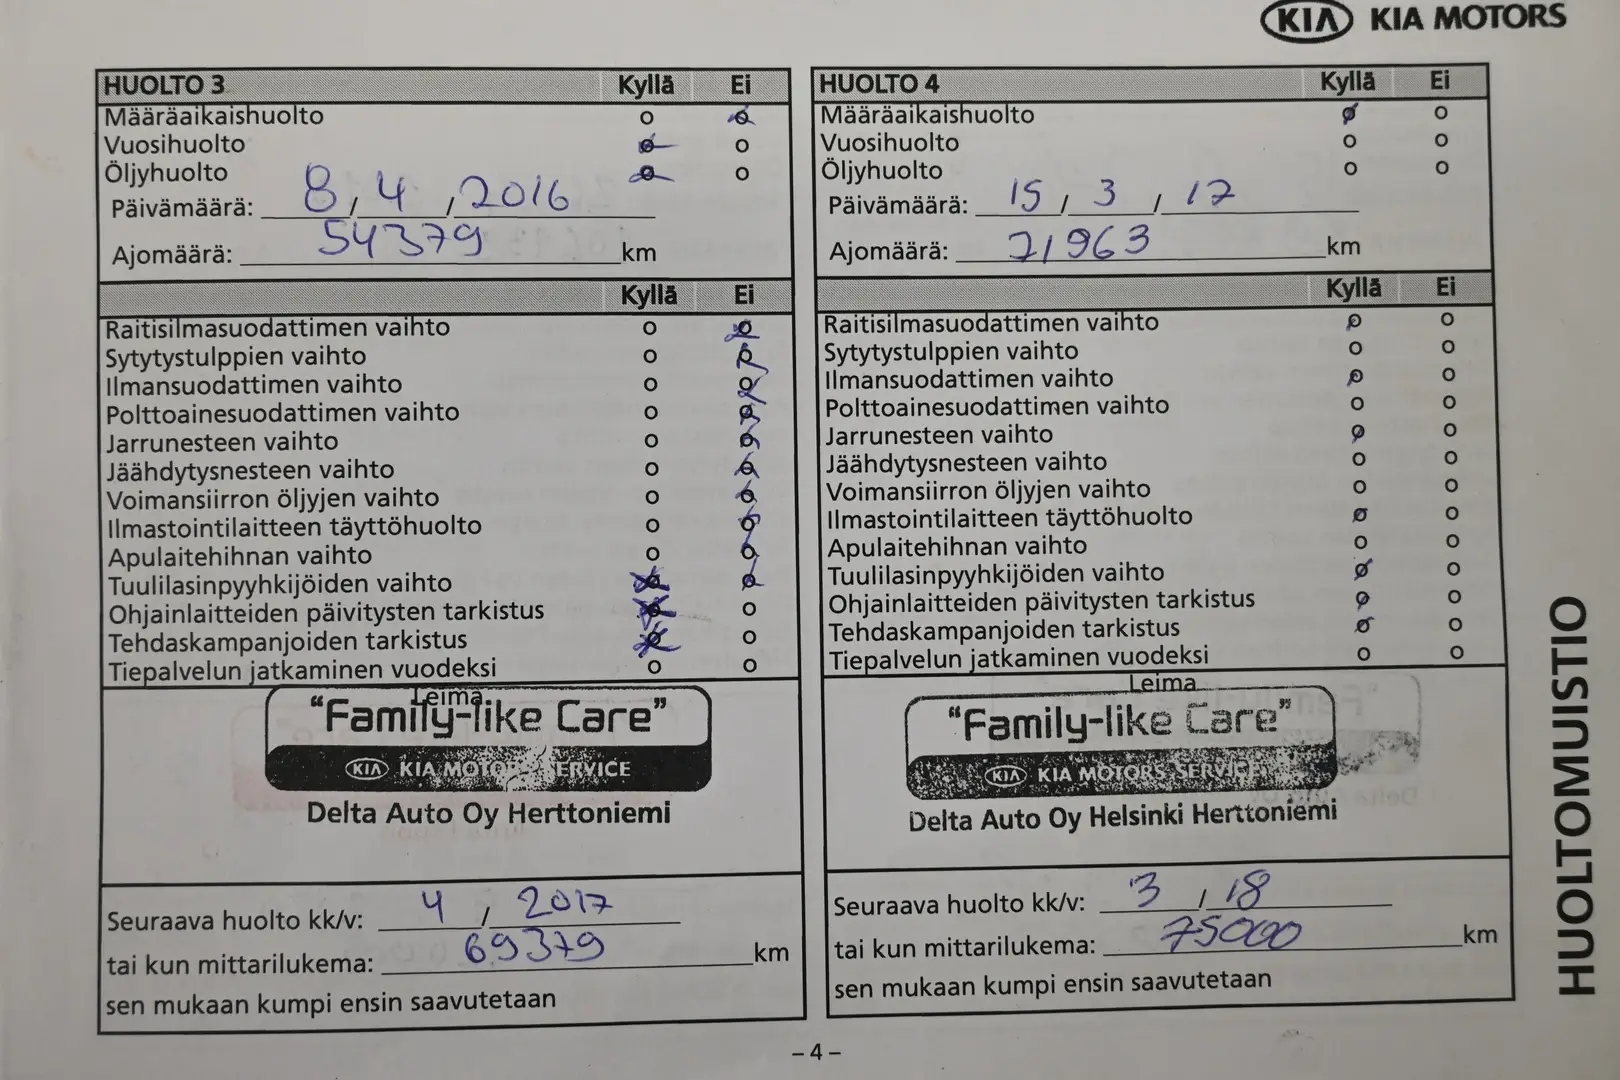 KIA KIA MOTORS
HUOLTO 3 Kyllä Ei
Määräaikaishuolto
Vuosihuolto
Öljyhuolto
Päivämäärä: 8 / 4 / 2016
Ajomäärä: 54379 km
Kyllä Ei
Raitisilmasuodattimen vaihto
Sytytystulppien vaihto
Ilmansuodattimen vaihto
Polttoainesuodattimen vaihto
Jarrunesteen vaihto
Jäähdytysnesteen vaihto
Voimansiirron öljyjen vaihto
Ilmastointilaitteen täyttöhuolto
Apulaitehihnan vaihto
Tuulilasinpyyhkijöiden vaihto
Ohjainlaitteiden päivitysten tarkistus
Tehdaskampanjoiden tarkistus
Tiepalvelun jatkaminen vuodeksi
Leima
"Family-like Care"
KIA KIA MOTORS SERVICE
Delta Auto Oy Herttoniemi
Seuraava huolto kk/v: 4 / 2017
tai kun mittarilukema: 69379 km
sen mukaan kumpi ensin saavutetaan
HUOLTO 4 Kyllä Ei
Määräaikaishuolto
Vuosihuolto
Öljyhuolto
Päivämäärä: 15 / 3 / 17
Ajomäärä: 71963 km
Kyllä Ei
Raitisilmasuodattimen vaihto
Sytytystulppien vaihto
Ilmansuodattimen vaihto
Polttoainesuodattimen vaihto
Jarrunesteen vaihto
Jäähdytysnesteen vaihto
Voimansiirron öljyjen vaihto
Ilmastointilaitteen täyttöhuolto
Apulaitehihnan vaihto
Tuulilasinpyyhkijöiden vaihto
Ohjainlaitteiden päivitysten tarkistus
Tehdaskampanjoiden tarkistus
Tiepalvelun jatkaminen vuodeksi
Leima
"Family-like Care"
KIA KIA MOTORS SERVICE
Delta Auto Oy Helsinki Herttoniemi
Seuraava huolto kk/v: 3 / 18
tai kun mittarilukema: 75000 km
sen mukaan kumpi ensin saavutetaan
HUOLTOMUISTIO
– 4 –